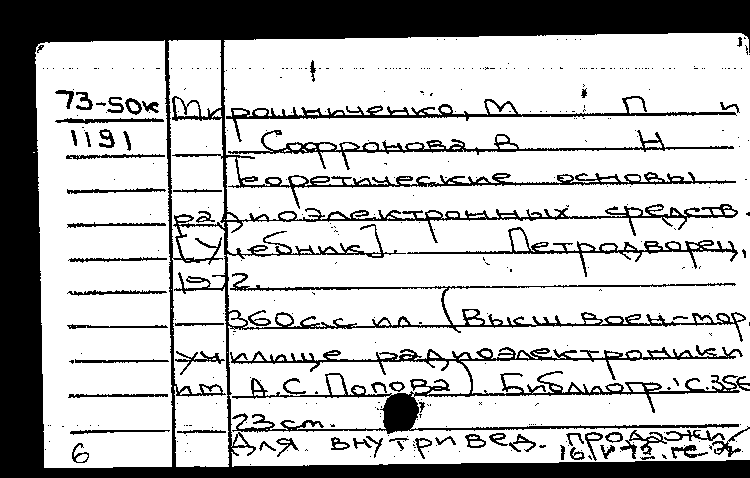 73-50к Мирошниченко, М П и
1191 Сафронова, В Н
Теоретические основы
радиоэлектронных средств.
[Учебник]. Петродворец,
1972.
360 с.с ил. (Высш воен-мор.
училище радиоэлектроники
им А.С. Попова). Библиогр.: с.356
23 см.
6 Для внутривед. продажи